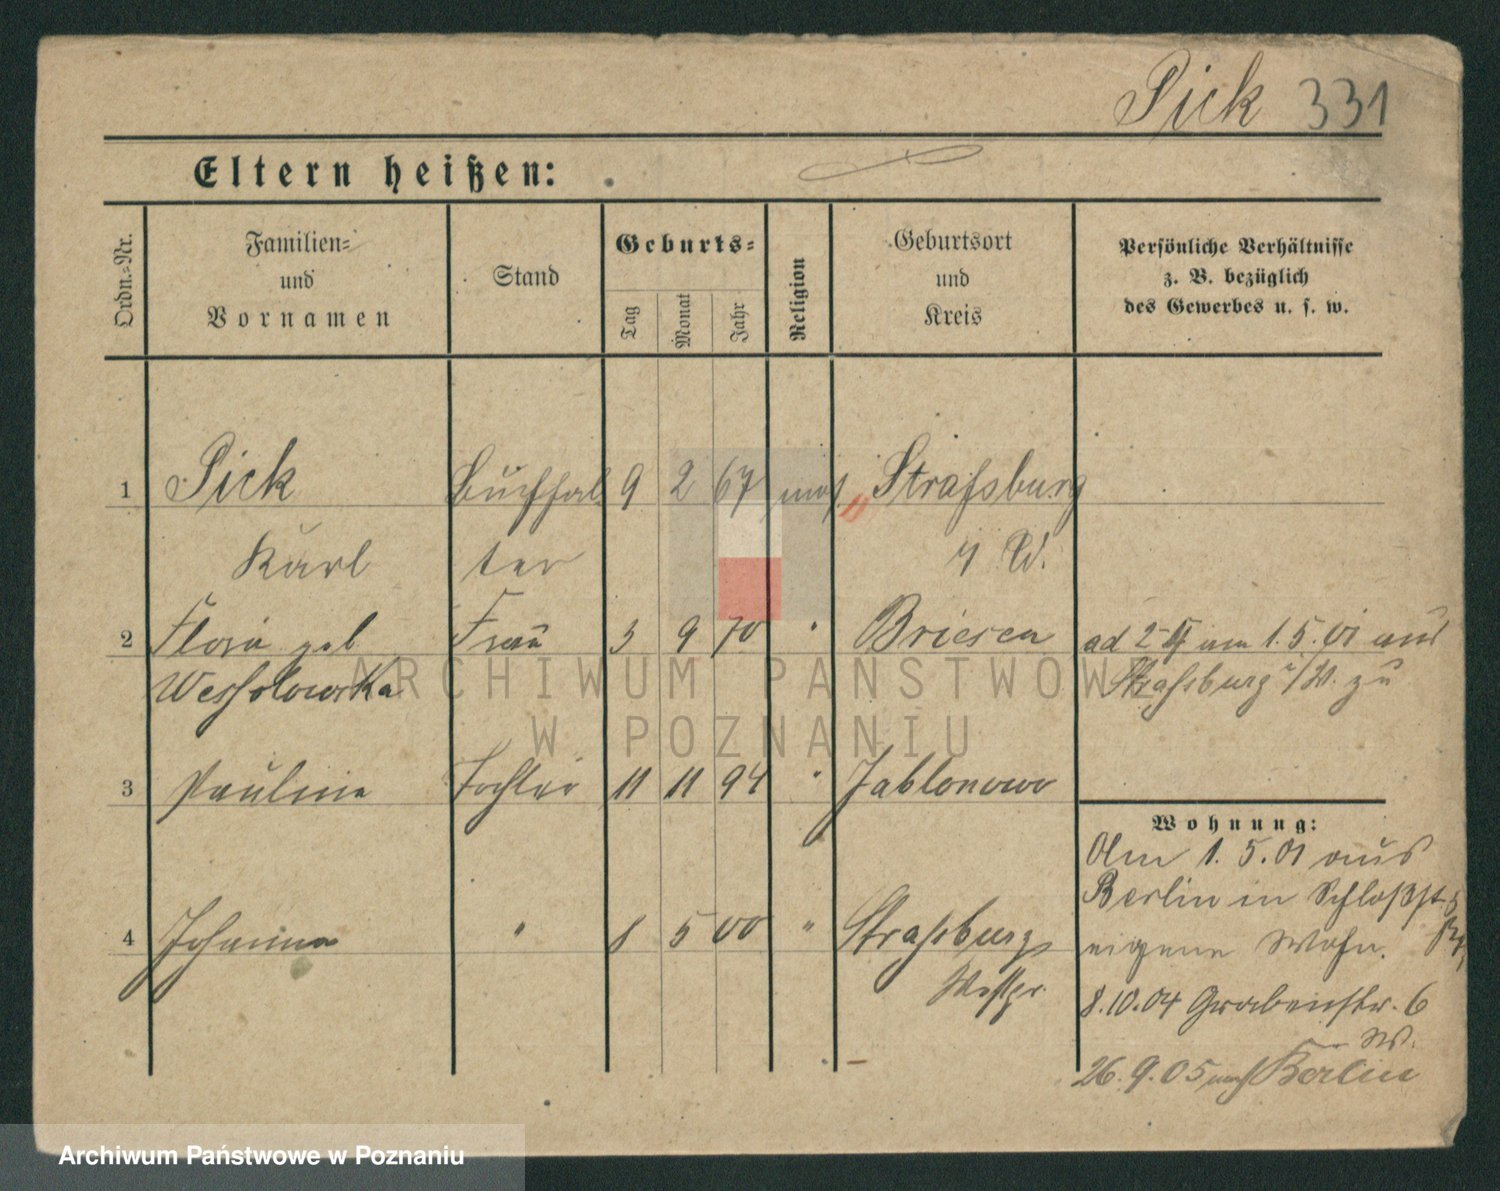 Pick 331
Eltern heißen:
Ordn.-Nr.
Familien-
und
Vornamen
Stand
Geburts-
Tag
Monat
Jahr
Religion
Geburtsort
und
Kreis
Persönliche Verhältnisse
z. B. bezüglich
des Gewerbes u. s. w.
1 Pick Buchhal 9 2 67 mos. Strassburg
Karl ter W.
2 Flora geb Frau 3 9 70 " Briesen ad 2-4 am 1.5.01 aus
Wessolowska Strassburg /W. zu
3 Pauline Tochter 11 11 94 " Jablonowo
Wohnung:
Am 1.5.01 aus
Berlin in Schloßstr. 5
4 Johanna " 8 5 00 " Strassburg eigene Wohn.
Westpr. 8.10.04 Grabenstr. 6
W.
26.9.05 nach Berlin
ARCHIWUM PAŃSTWOWE
W POZNANIU
Archiwum Państwowe w Poznaniu